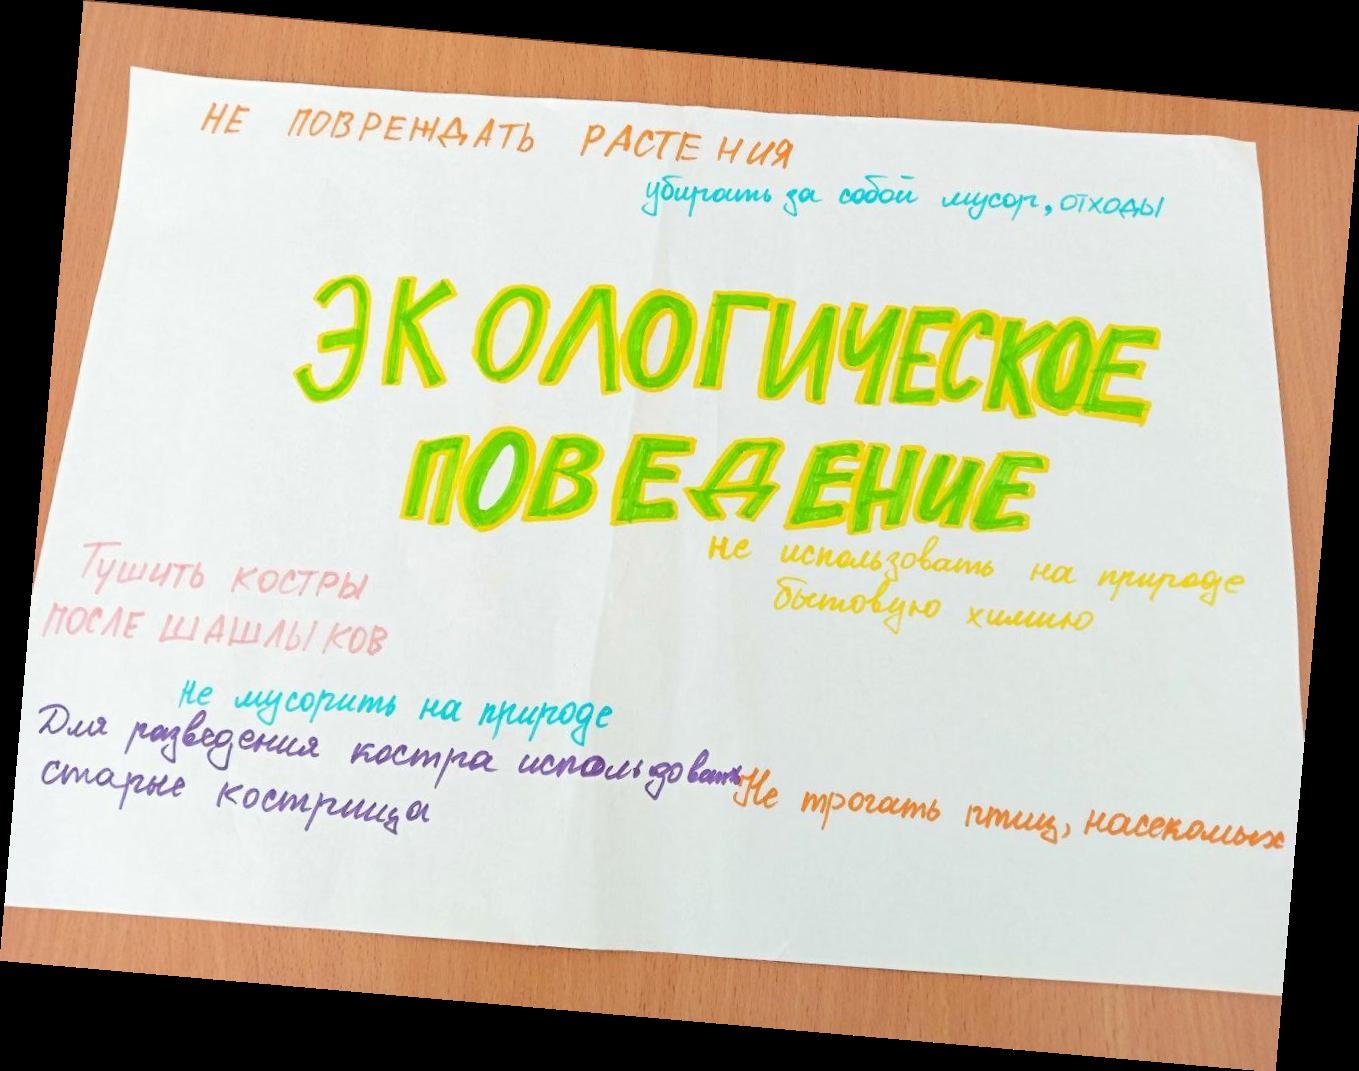 НЕ ПОВРЕЖДАТЬ РАСТЕНИЯ
убирать за собой мусор, отходы
ЭКОЛОГИЧЕСКОЕ
ПОВЕДЕНИЕ
не использовать на природе
бытовую химию
Тушить костры
после шашлыков
не мусорить на природе
Для разведения костра использовать
старые кострища
Не трогать птиц, насекомых